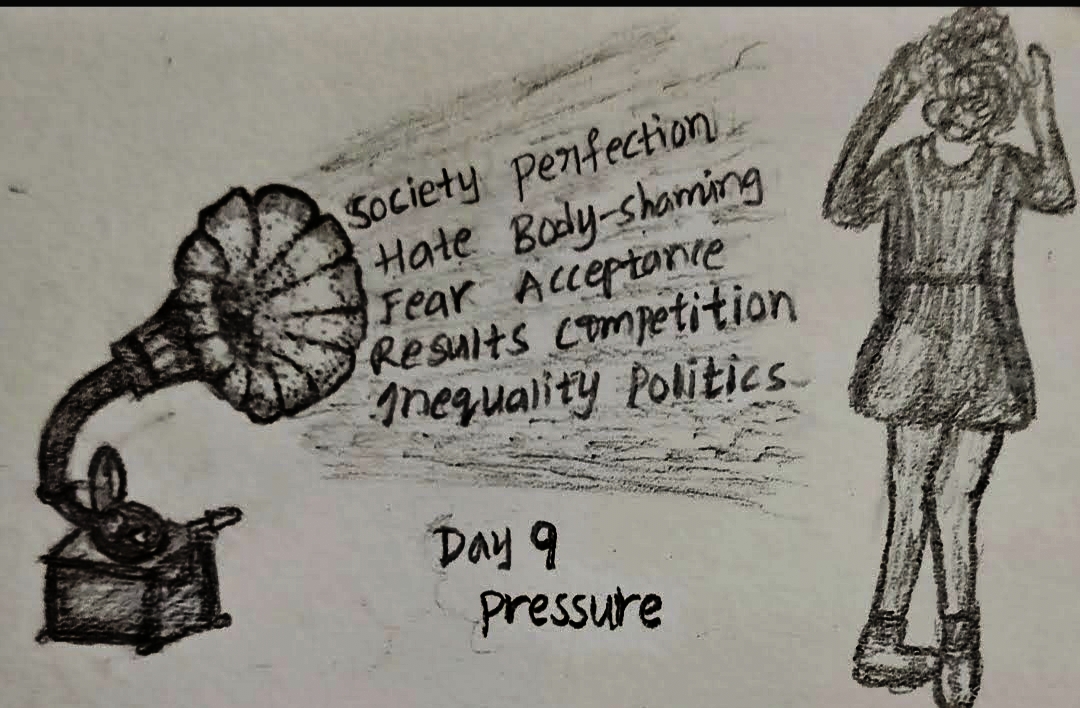 Society Perfection
Hate Body-shaming
Fear Acceptance
Results Competition
Inequality Politics
Day 9
Pressure